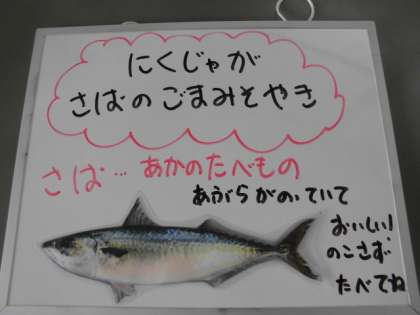 にくじゃが
さばのごまみそやき
さば… あかのたべもの
あぶらがのっていて
おいしい！
のこさず
たべてね